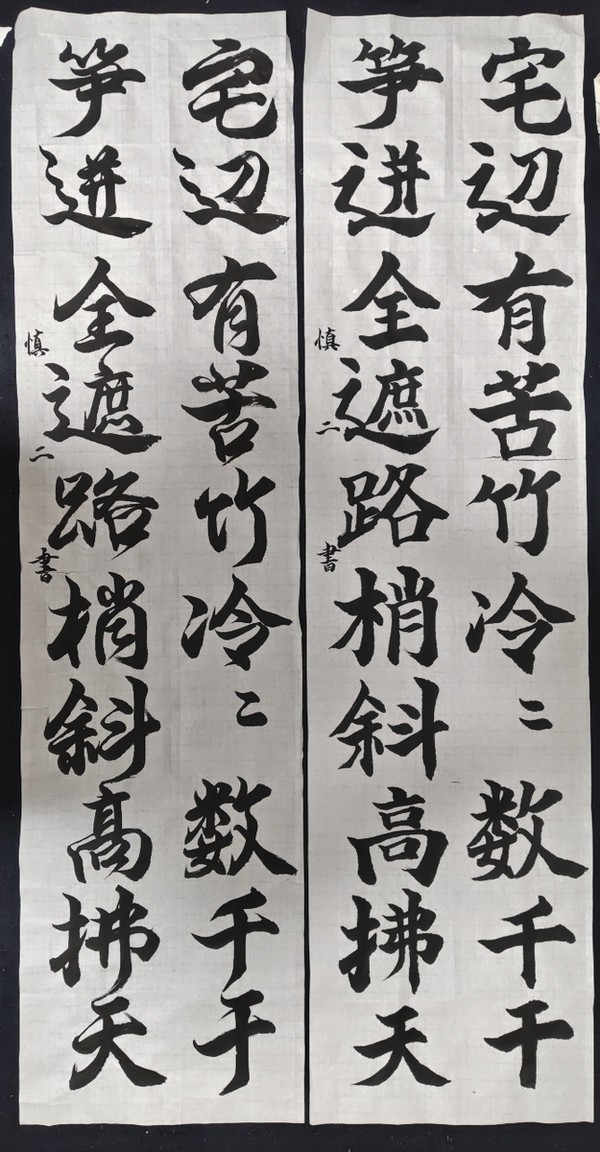 宅辺有苦竹冷二数千干
笋迸全遮路梢斜高拂天
慎二書
宅辺有苦竹冷二数千干
笋迸全遮路梢斜髙拂天
慎二書